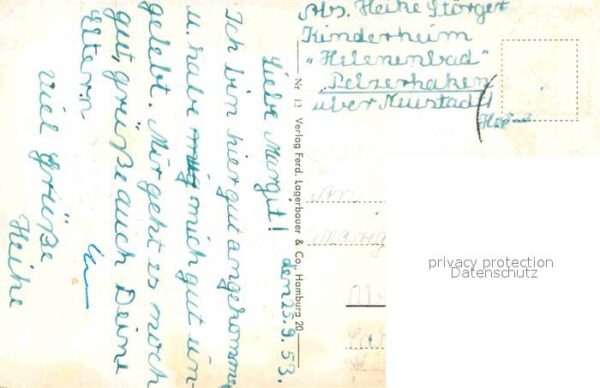 Abs. Heike Störger
Kinderheim
"Helenenbad"
Pelzerhaken
über Neustadt
Holst.
den 25.9.53.
Liebe Margit!
Ich bin hier gut angekomme
u. habe mich gut ein
gelebt. Mir geht es noch
gut, grüße auch Deine
Eltern
Viel Grüße
Heike
Nr. 13 Verlag Ferd. Lagerbauer & Co., Hamburg 20
An
Marg
privacy protection
Datenschutz